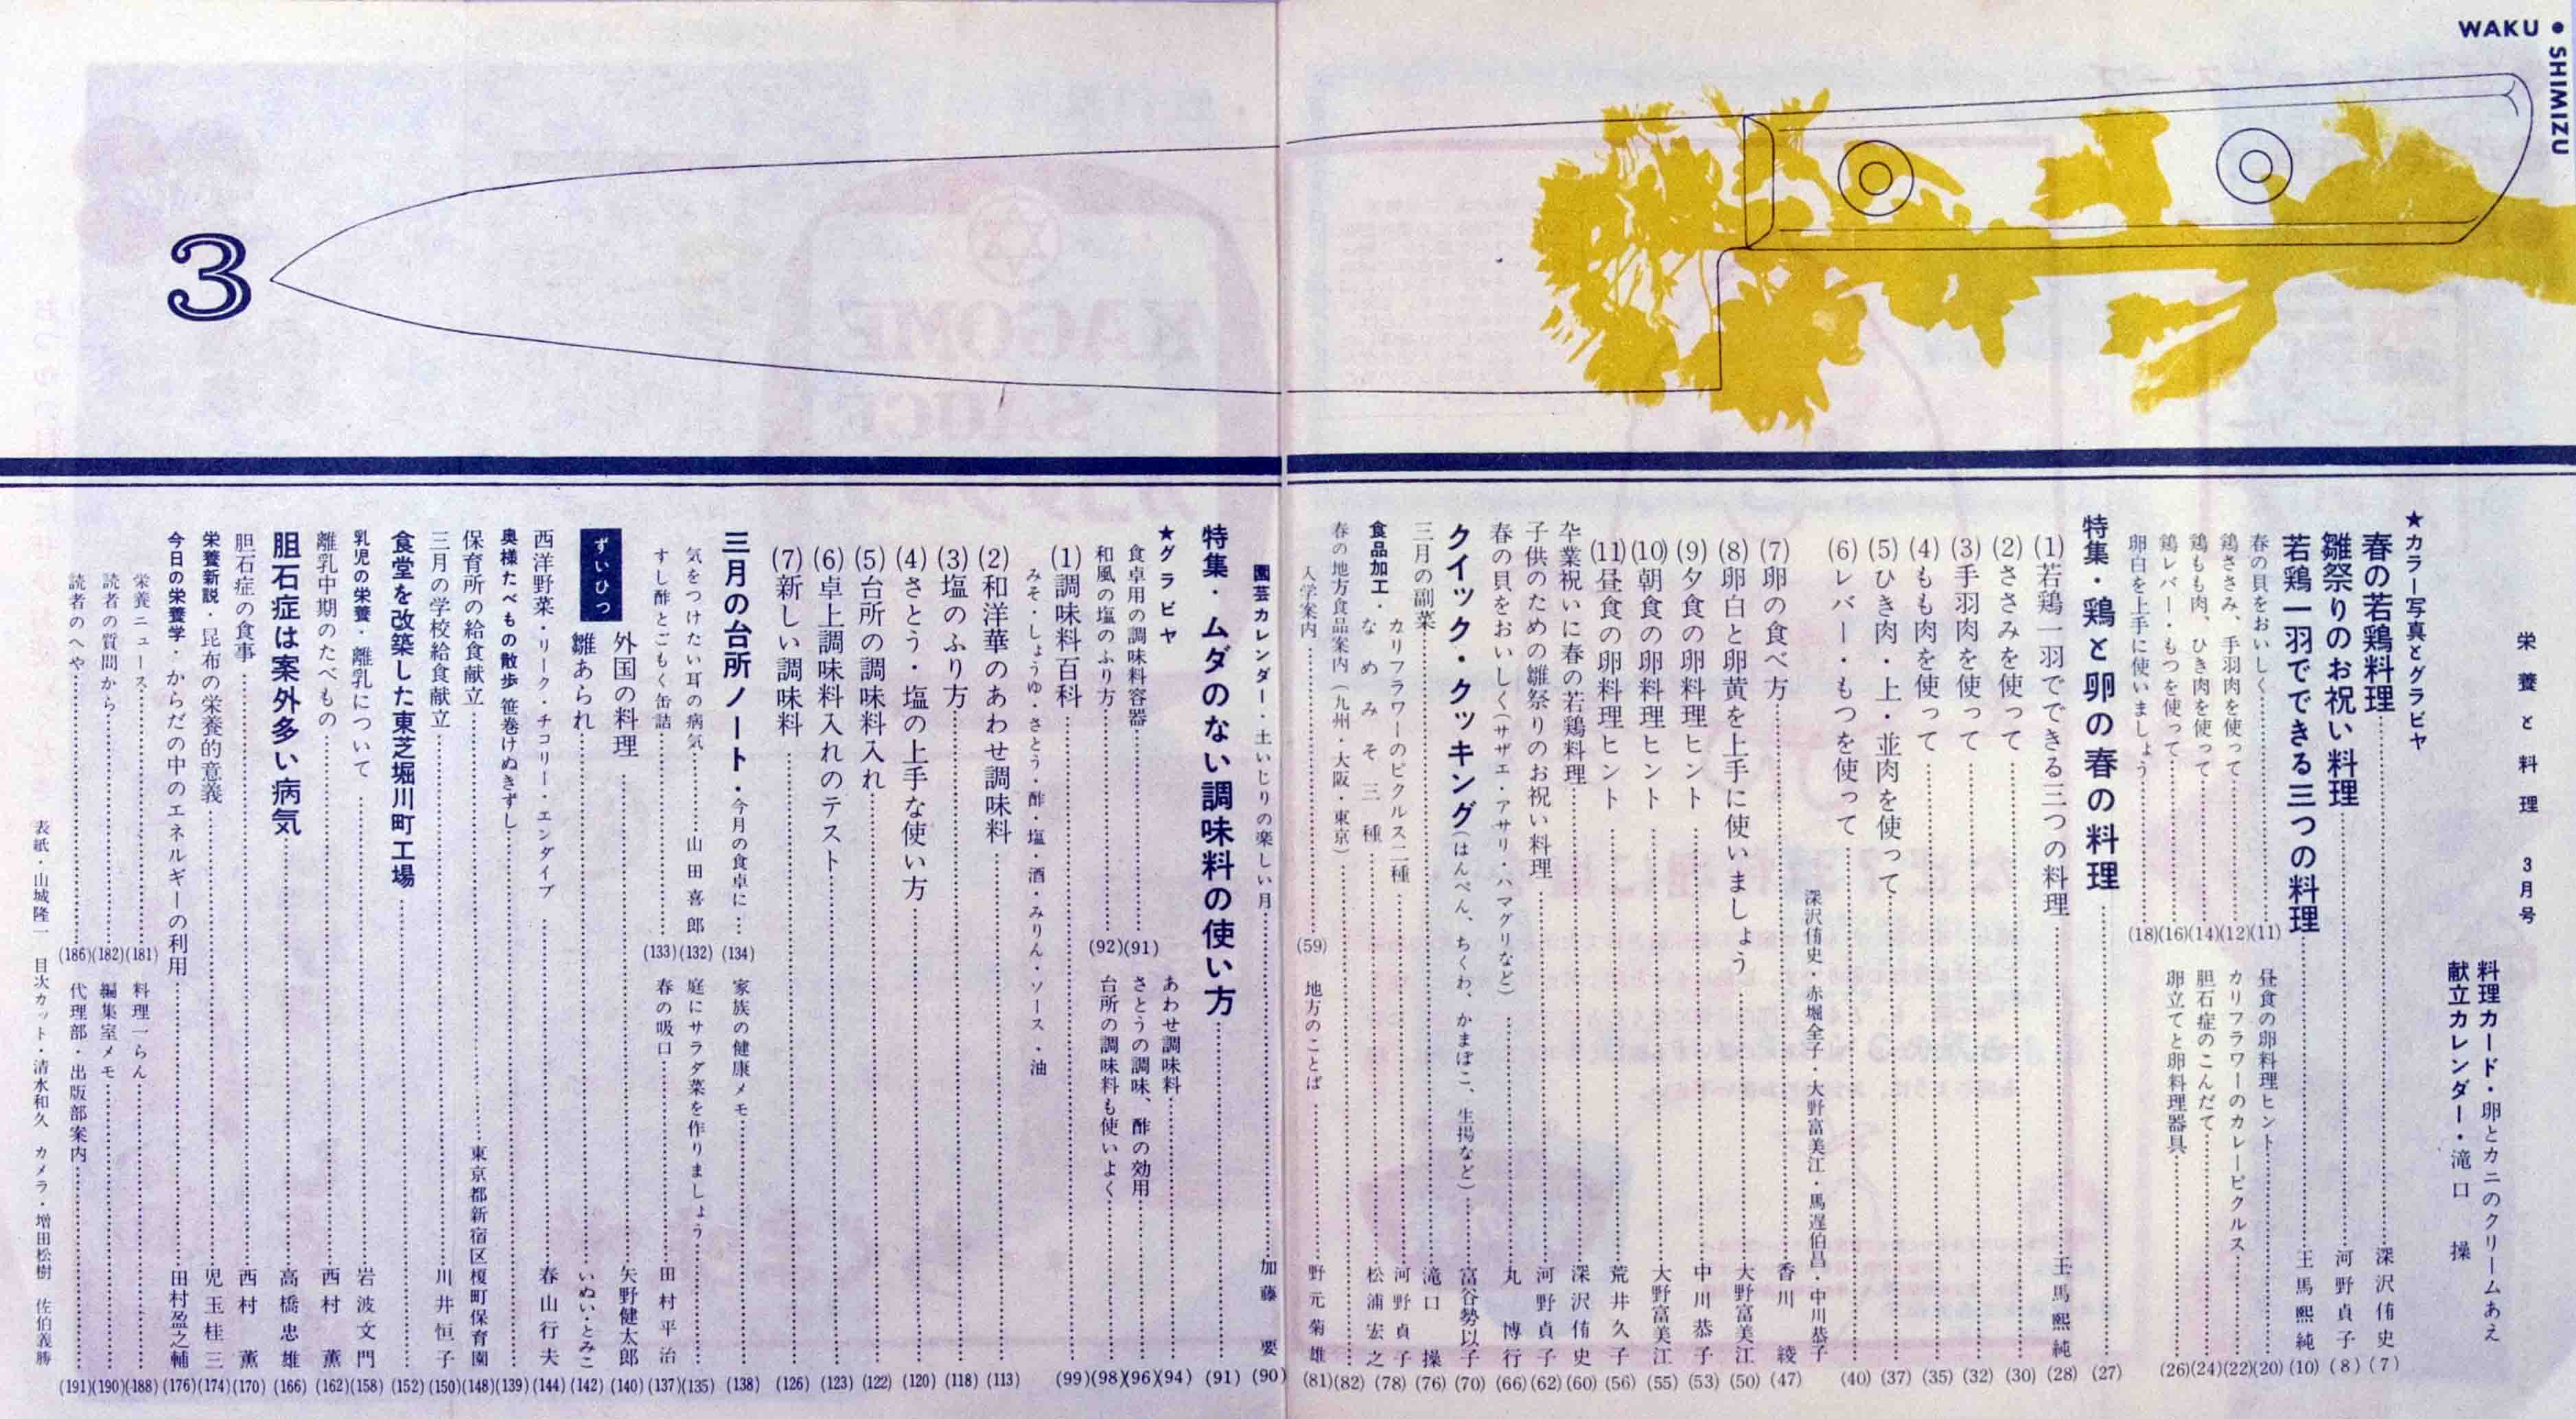 WAKU • SHIMIZU
3
栄養と料理 3月号
料理カード・卵とカニのクリームあえ
献立カレンダー・滝口 操
★カラー写真とグラビヤ
春の若鶏料理 深沢侑史 (7)
雛祭りのお祝い料理 河野貞子 (8)
若鶏一羽でできる三つの料理 王馬熙純 (10)
春の貝をおいしく (11)
昼食の卵料理ヒント (20)
鶏ささみ、手羽肉を使って (12)
カリフラワーのカレーピクルス (22)
鶏もも肉、ひき肉を使って (14)
胆石症のこんだて (24)
鶏レバー・もつを使って (16)
卵立てと卵料理器具 (26)
卵白を上手に使いましょう (18)
特集・鶏と卵の春の料理 (27)
(1)若鶏一羽でできる三つの料理 王馬熙純 (28)
(2)ささみを使って (30)
(3)手羽肉を使って (32)
(4)もも肉を使って (35)
(5)ひき肉・上・並肉を使って (37)
(6)レバー・もつを使って (40)
深沢侑史・赤堀全子・大野富美江・馬遅伯昌・中川恭子
(7)卵の食べ方 香川 綾 (47)
(8)卵白と卵黄を上手に使いましょう 大野富美江 (50)
(9)夕食の卵料理ヒント 中川恭子 (53)
(10)朝食の卵料理ヒント 大野富美江 (55)
(11)昼食の卵料理ヒント 荒井久子 (56)
卒業祝いに春の若鶏料理 深沢侑史 (60)
子供のための雛祭りのお祝い料理 河野貞子 (62)
春の貝をおいしく(サザエ・アサリ・ハマグリなど) 丸 博行 (66)
クイック・クッキング(はんぺん、ちくわ、かまぼこ、生揚など) 富谷勢以子 (70)
三月の副菜 滝口 操 (76)
カリフラワーのピクルス二種 河野貞子 (78)
食品加工・なめみそ三種 松浦宏之 (82)
春の地方食品案内(九州・大阪・東京)
入学案内 (59)
地方のことば 野元菊雄 (81)
園芸カレンダー・土いじりの楽しい月 加藤 要 (90)
特集・ムダのない調味料の使い方 (91)
★グラビヤ
あわせ調味料 (94)
食卓用の調味料容器 (91)
さとうの調味、酢の効用 (96)
和風の塩のふり方 (92)
台所の調味料も使いよく (98)
(1)調味料百科 (99)
みそ・しょうゆ・さとう・酢・塩・酒・みりん・ソース・油
(2)和洋華のあわせ調味料 (113)
(3)塩のふり方 (118)
(4)さとう・塩の上手な使い方 (120)
(5)台所の調味料入れ (122)
(6)卓上調味料入れのテスト (123)
(7)新しい調味料 (126)
三月の台所ノート・今月の食卓に… (134)
家族の健康メモ (138)
気をつけたい耳の病気 山田喜郎 (132)
庭にサラダ菜を作りましょう (135)
すし酢とごもく缶詰 (133)
春の吸口 田村平治 (137)
ずいひつ
外国の料理 矢野健太郎 (140)
雛あられ いぬい・とみこ (142)
西洋野菜・リーク・チコリー・エンダイブ 春山行夫 (144)
奥様たべもの散歩 笹巻けぬきずし (139)
保育所の給食献立 東京都新宿区榎町保育園 (148)
三月の学校給食献立 川井恒子 (150)
食堂を改築した東芝堀川町工場 (152)
乳児の栄養・離乳について 岩波文門 (158)
離乳中期のたべもの 西村 薫 (162)
胆石症は案外多い病気 高橋忠雄 (166)
胆石症の食事 西村 薫 (170)
栄養新説・昆布の栄養的意義 児玉桂三 (174)
今日の栄養学・からだの中のエネルギーの利用 田村盈之輔 (176)
栄養ニュース (181)
料理一らん (188)
読者の質問から (182)
編集室メモ (190)
読者のへや (186)
代理部・出版部案内 (191)
表紙・山城隆一 目次カット・清水和久 カメラ・増田松樹 佐伯義勝